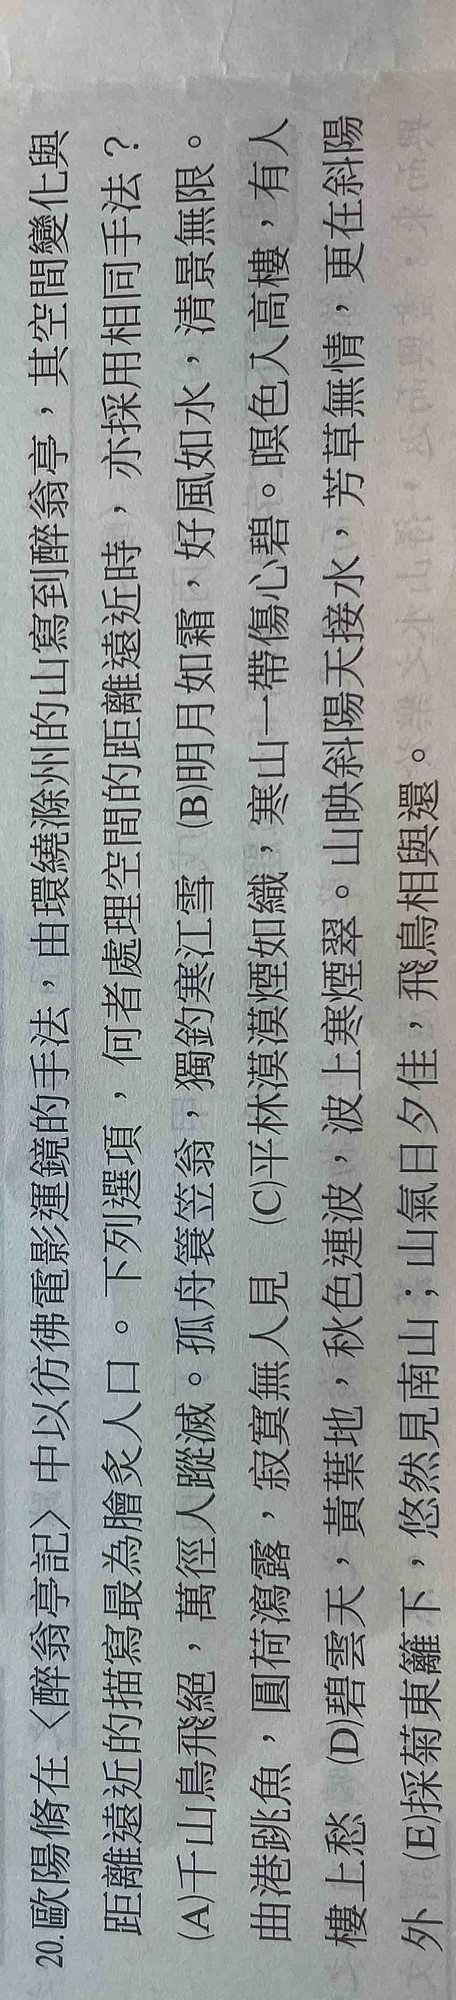 20.歐陽脩在〈醉翁亭記〉中以彷彿電影運鏡的手法，由環繞滁州的山寫到醉翁亭，其空間變化與
距離遠近的描寫最為膾炙人口。下列選項，何者處理空間的距離遠近時，亦採用相同手法？
(A)千山鳥飛絕，萬徑人蹤滅。孤舟簑笠翁，獨釣寒江雪　(B)明月如霜，好風如水，清景無限。
曲港跳魚，圓荷瀉露，寂寞無人見　(C)平林漠漠煙如織，寒山一帶傷心碧。暝色入高樓，有人
樓上愁　(D)碧雲天，黃葉地，秋色連波，波上寒煙翠。山映斜陽天接水，芳草無情，更在斜陽
外　(E)採菊東籬下，悠然見南山；山氣日夕佳，飛鳥相與還。